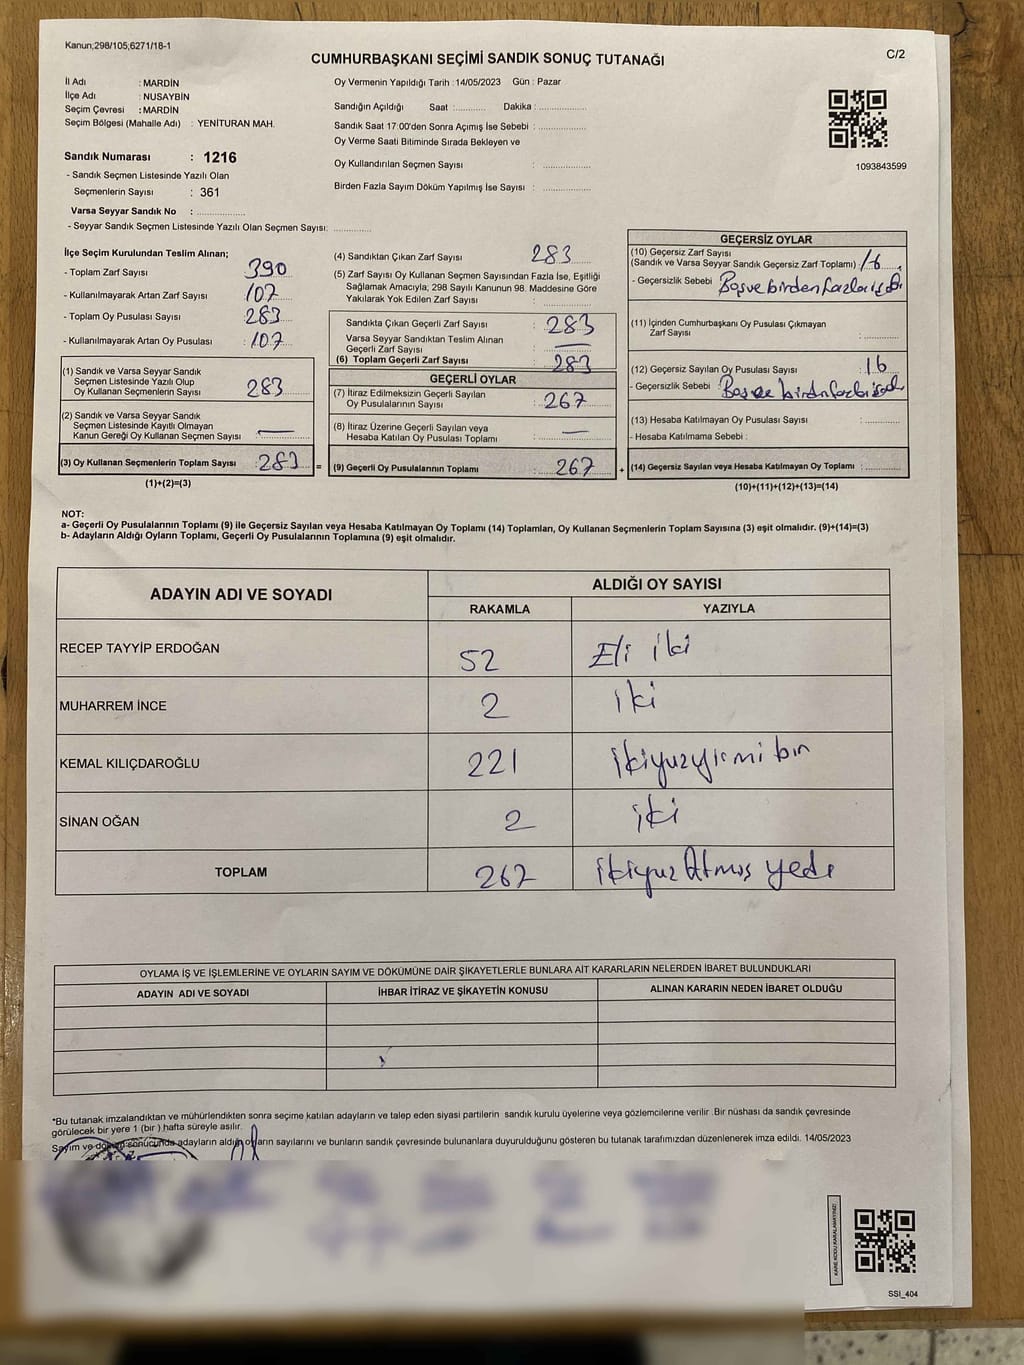 Kanun;298/105;6271/18-1
CUMHURBAŞKANI SEÇİMİ SANDIK SONUÇ TUTANAĞI
C/2
İl Adı : MARDİN
İlçe Adı : NUSAYBİN
Seçim Çevresi : MARDİN
Seçim Bölgesi (Mahalle Adı) : YENİTURAN MAH.
Oy Vermenin Yapıldığı Tarih : 14/05/2023 Gün : Pazar
Sandığın Açıldığı Saat :........... Dakika :.................
Sandık Saat 17:00'den Sonra Açımış İse Sebebi : .................
Oy Verme Saati Bitiminde Sırada Bekleyen ve
Oy Kullandırılan Seçmen Sayısı : .................
Birden Fazla Sayım Döküm Yapılmış İse Sayısı : .................
1093843599
Sandık Numarası : 1216
- Sandık Seçmen Listesinde Yazılı Olan
Seçmenlerin Sayısı : 361
Varsa Seyyar Sandık No : .................
- Seyyar Sandık Seçmen Listesinde Yazılı Olan Seçmen Sayısı: .............
İlçe Seçim Kurulundan Teslim Alınan;
- Toplam Zarf Sayısı : 390
- Kullanılmayarak Artan Zarf Sayısı : 107
- Toplam Oy Pusulası Sayısı : 283
- Kullanılmayarak Artan Oy Pusulası : 107
(1) Sandık ve Varsa Seyyar Sandık
Seçmen Listesinde Yazılı Olup
Oy Kullanan Seçmenlerin Sayısı : 283
(2) Sandık ve Varsa Seyyar Sandık
Seçmen Listesinde Kayıtlı Olmayan
Kanun Gereği Oy Kullanan Seçmen Sayısı : —
(3) Oy Kullanan Seçmenlerin Toplam Sayısı : 283 =
(1)+(2)=(3)
(4) Sandıktan Çıkan Zarf Sayısı : 283
(5) Zarf Sayısı Oy Kullanan Seçmen Sayısından Fazla İse, Eşitliği
Sağlamak Amacıyla; 298 Sayılı Kanunun 98. Maddesine Göre
Yakılarak Yok Edilen Zarf Sayısı : .................
Sandıkta Çıkan Geçerli Zarf Sayısı : 283
Varsa Seyyar Sandıktan Teslim Alınan
Geçerli Zarf Sayısı : —
(6) Toplam Geçerli Zarf Sayısı : 283
GEÇERLİ OYLAR
(7) İtiraz Edilmeksizin Geçerli Sayılan
Oy Pusulalarının Sayısı : 267
(8) İtiraz Üzerine Geçerli Sayılan veya
Hesaba Katılan Oy Pusulası Toplamı : —
(9) Geçerli Oy Pusulalarının Toplamı : 267 +
GEÇERSİZ OYLAR
(10) Geçersiz Zarf Sayısı
(Sandık ve Varsa Seyyar Sandık Geçersiz Zarf Toplamı) : 16
- Geçersizlik Sebebi : Boş ve birden fazla
(11) İçinden Cumhurbaşkanı Oy Pusulası Çıkmayan
Zarf Sayısı : .............
(12) Geçersiz Sayılan Oy Pusulası Sayısı : 16
- Geçersizlik Sebebi : Boş ve birden fazla
(13) Hesaba Katılmayan Oy Pusulası Sayısı : .............
- Hesaba Katılmama Sebebi :
(14) Geçersiz Sayılan veya Hesaba Katılmayan Oy Toplamı : .............
(10)+(11)+(12)+(13)=(14)
NOT:
a- Geçerli Oy Pusulalarının Toplamı (9) ile Geçersiz Sayılan veya Hesaba Katılmayan Oy Toplamı (14) Toplamları, Oy Kullanan Seçmenlerin Toplam Sayısına (3) eşit olmalıdır. (9)+(14)=(3)
b- Adayların Aldığı Oyların Toplamı, Geçerli Oy Pusulalarının Toplamına (9) eşit olmalıdır.
ADAYIN ADI VE SOYADI
ALDIĞI OY SAYISI
RAKAMLA YAZIYLA
RECEP TAYYİP ERDOĞAN 52 Eli iki
MUHARREM İNCE 2 iki
KEMAL KILIÇDAROĞLU 221 ikiyuzyirmi bir
SİNAN OĞAN 2 iki
TOPLAM 267 ikiyuz Atmış yedi
OYLAMA İŞ VE İŞLEMLERİNE VE OYLARIN SAYIM VE DÖKÜMÜNE DAİR ŞİKAYETLERLE BUNLARA AİT KARARLARIN NELERDEN İBARET BULUNDUKLARI
ADAYIN ADI VE SOYADI İHBAR İTİRAZ VE ŞİKAYETİN KONUSU ALINAN KARARIN NEDEN İBARET OLDUĞU
*Bu tutanak imzalandıktan ve mühürlendikten sonra seçime katılan adayların ve talep eden siyasi partilerin sandık kurulu üyelerine veya gözlemcilerine verilir .Bir nüshası da sandık çevresinde
görülecek bir yere 1 (bir ) hafta süreyle asılır.
Sayım ve döküm sonucunda adayların aldığı oyların sayılarını ve bunların sandık çevresinde bulunanlara duyurulduğunu gösteren bu tutanak tarafımızdan düzenlenerek imza edildi. 14/05/2023
KARE KODU KARALAMAYINIZ!
SSI_404